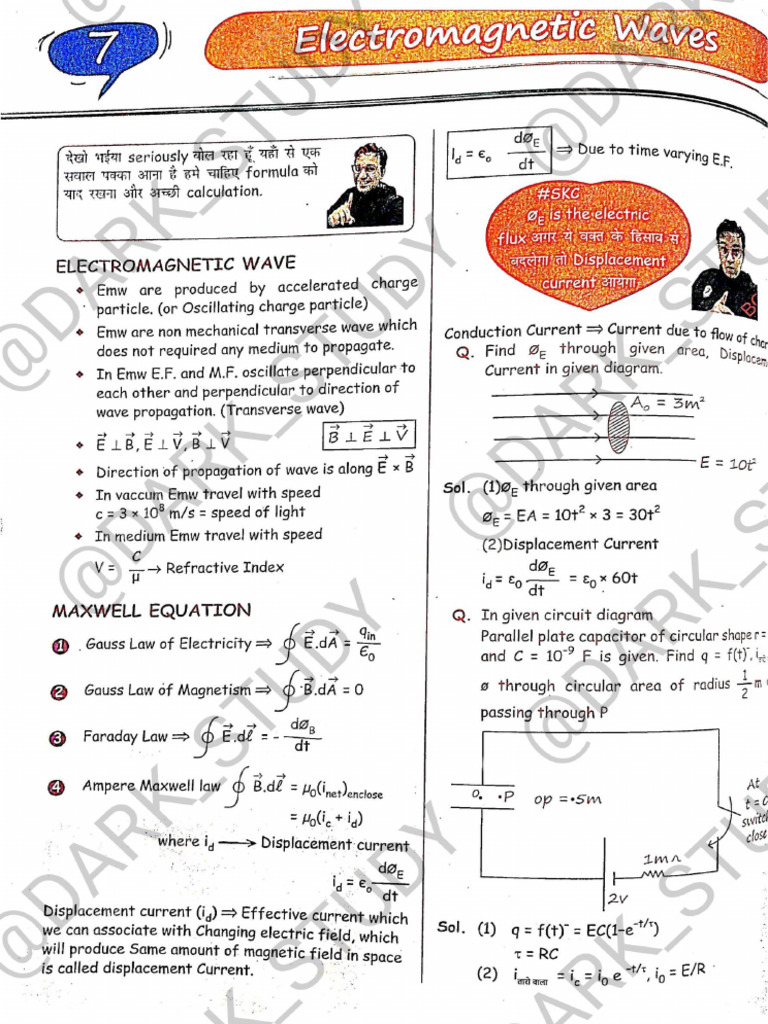 7
Electromagnetic Waves
देखो भईया seriously बोल रहा हूँ यहाँ से एक
सवाल पक्का आना है हमे चाहिए formula को
याद रखना और अच्छी calculation.
ELECTROMAGNETIC WAVE
Emw are produced by accelerated charge
particle. (or Oscillating charge particle)
Emw are non mechanical transverse wave which
does not required any medium to propagate.
In Emw E.F. and M.F. oscillate perpendicular to
each other and perpendicular to direction of
wave propagation. (Transverse wave)
E⃗ ⊥ B⃗, E⃗ ⊥ V⃗, B⃗ ⊥ V⃗ B⃗ ⊥ E⃗ ⊥ V⃗
Direction of propagation of wave is along E⃗ × B⃗
In vaccum Emw travel with speed
c = 3 × 10⁸ m/s = speed of light
In medium Emw travel with speed
V = C/μ → Refractive Index
MAXWELL EQUATION
1 Gauss Law of Electricity ⇒ ∮ E⃗.dA⃗ = q_in/ϵ₀
2 Gauss Law of Magnetism ⇒ ∮ B⃗.dA⃗ = 0
3 Faraday Law ⇒ ∮ E⃗.dℓ⃗ = - dø_B/dt
4 Ampere Maxwell law ∮ B⃗.dℓ⃗ = μ₀(i_net)enclose
= μ₀(i_c + i_d)
where i_d ⟶ Displacement current
i_d = ϵ₀ dø_E/dt
Displacement current (i_d) ⇒ Effective current which
we can associate with Changing electric field, which
will produce Same amount of magnetic field in space
is called displacement Current.
I_d = ϵ₀ dø_E/dt ⇒ Due to time varying E.F.
#SKC
ø_E is the electric
flux अगर ये वक्त के हिसाब से
बदलेगा तो Displacement
current आयगा
Conduction Current ⇒ Current due to flow of char
Q. Find ø_E through given area, Displacem
Current in given diagram.
A₀ = 3m²
E = 10t²
Sol. (1) ø_E through given area
ø_E = EA = 10t² × 3 = 30t²
(2) Displacement Current
i_d = ε₀ dø_E/dt = ε₀ × 60t
Q. In given circuit diagram
Parallel plate capacitor of circular shape r =
and C = 10⁻⁹ F is given. Find q = f(t)⁻,
ø through circular area of radius 1/2 m
passing through P
O. .P op = .5m
At
t = 0
switch
close
1mΩ
2V
Sol. (1) q = f(t)⁻ = EC(1-e^(-t/τ))
τ = RC
(2) i_तारो वाला = i_c = i₀ e^(-t/τ), i₀ = E/R
@DARK_STUDY